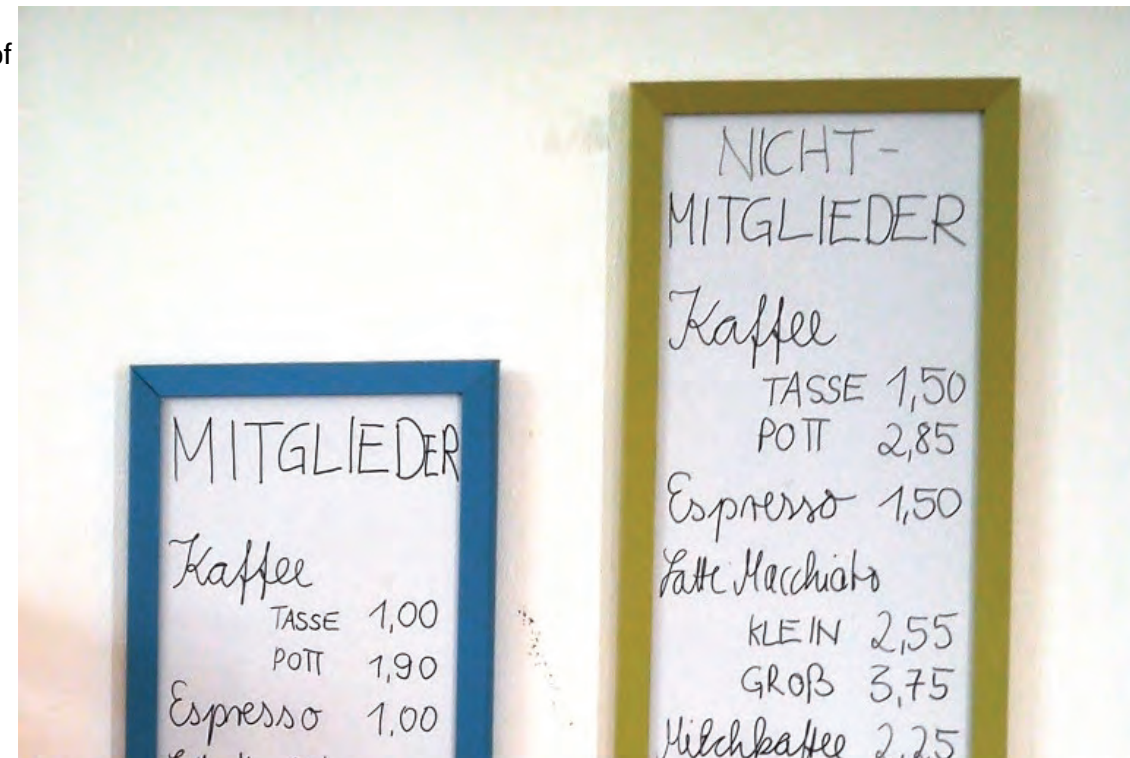 of
MITGLIEDER
Kaffee
TASSE 1,00
POTT 1,90
Espresso 1,00
NICHT-
MITGLIEDER
Kaffee
TASSE 1,50
POTT 2,85
Espresso 1,50
Latte Macchiato
KLEIN 2,55
GROß 3,75
Milchkaffee 2,25